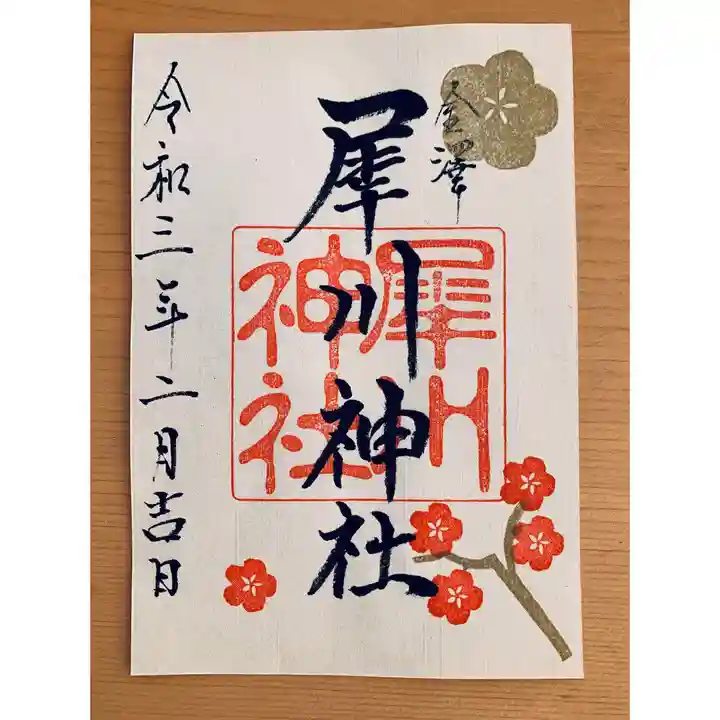 金澤
犀川神社
犀川
神社
令和三年二月吉日